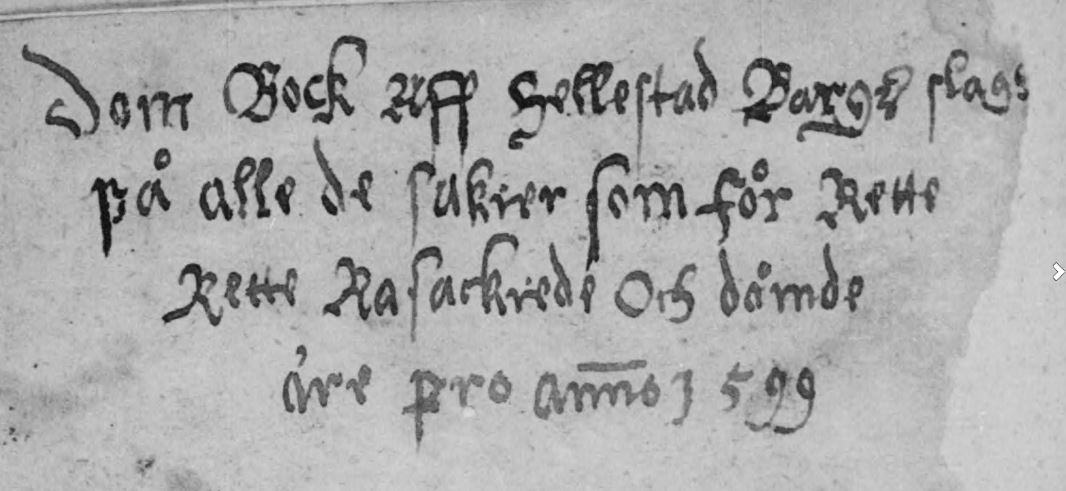 Dom Bock Aff Hellestad Bargz slags
på alle de sakier som för Rette
Rette Rasackrede Och dömde
äre pro anno 1599